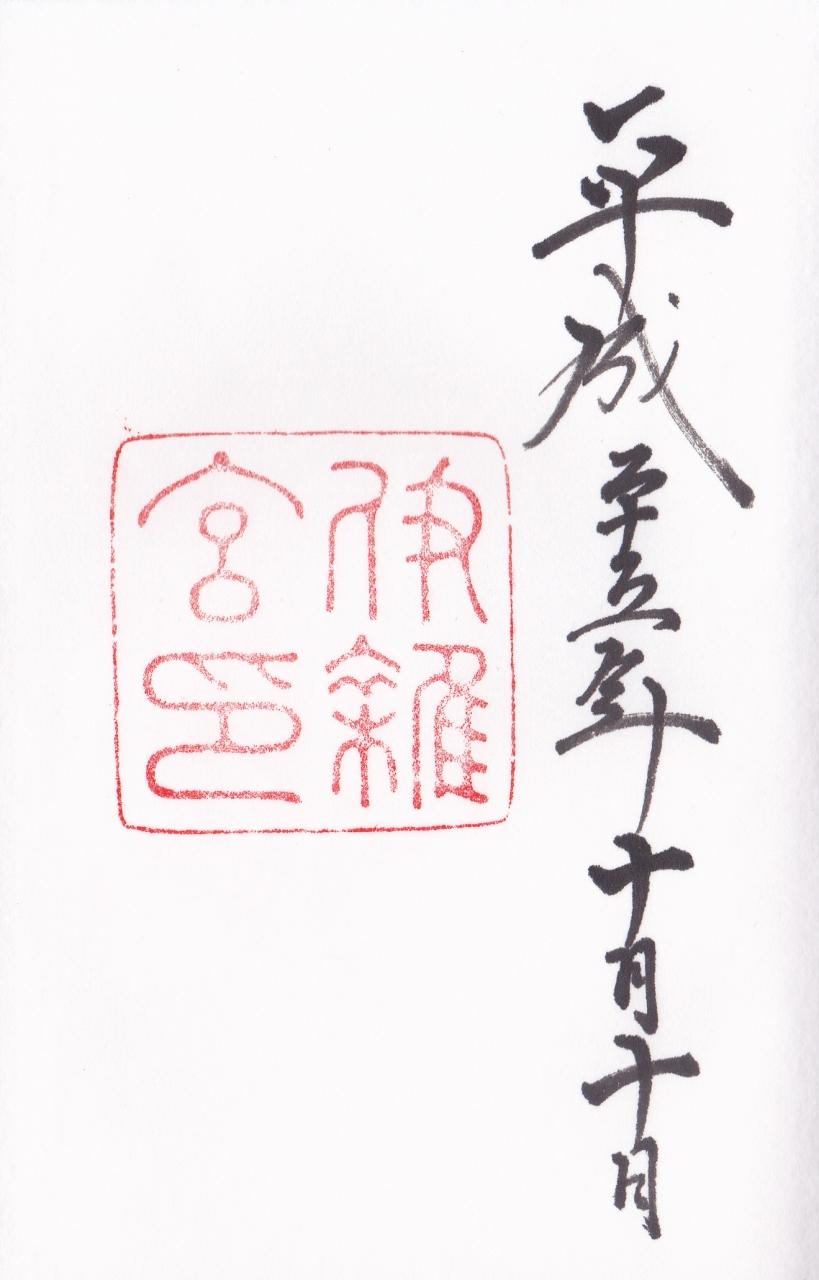 平成二十五年十月十日
伊雜
宮印